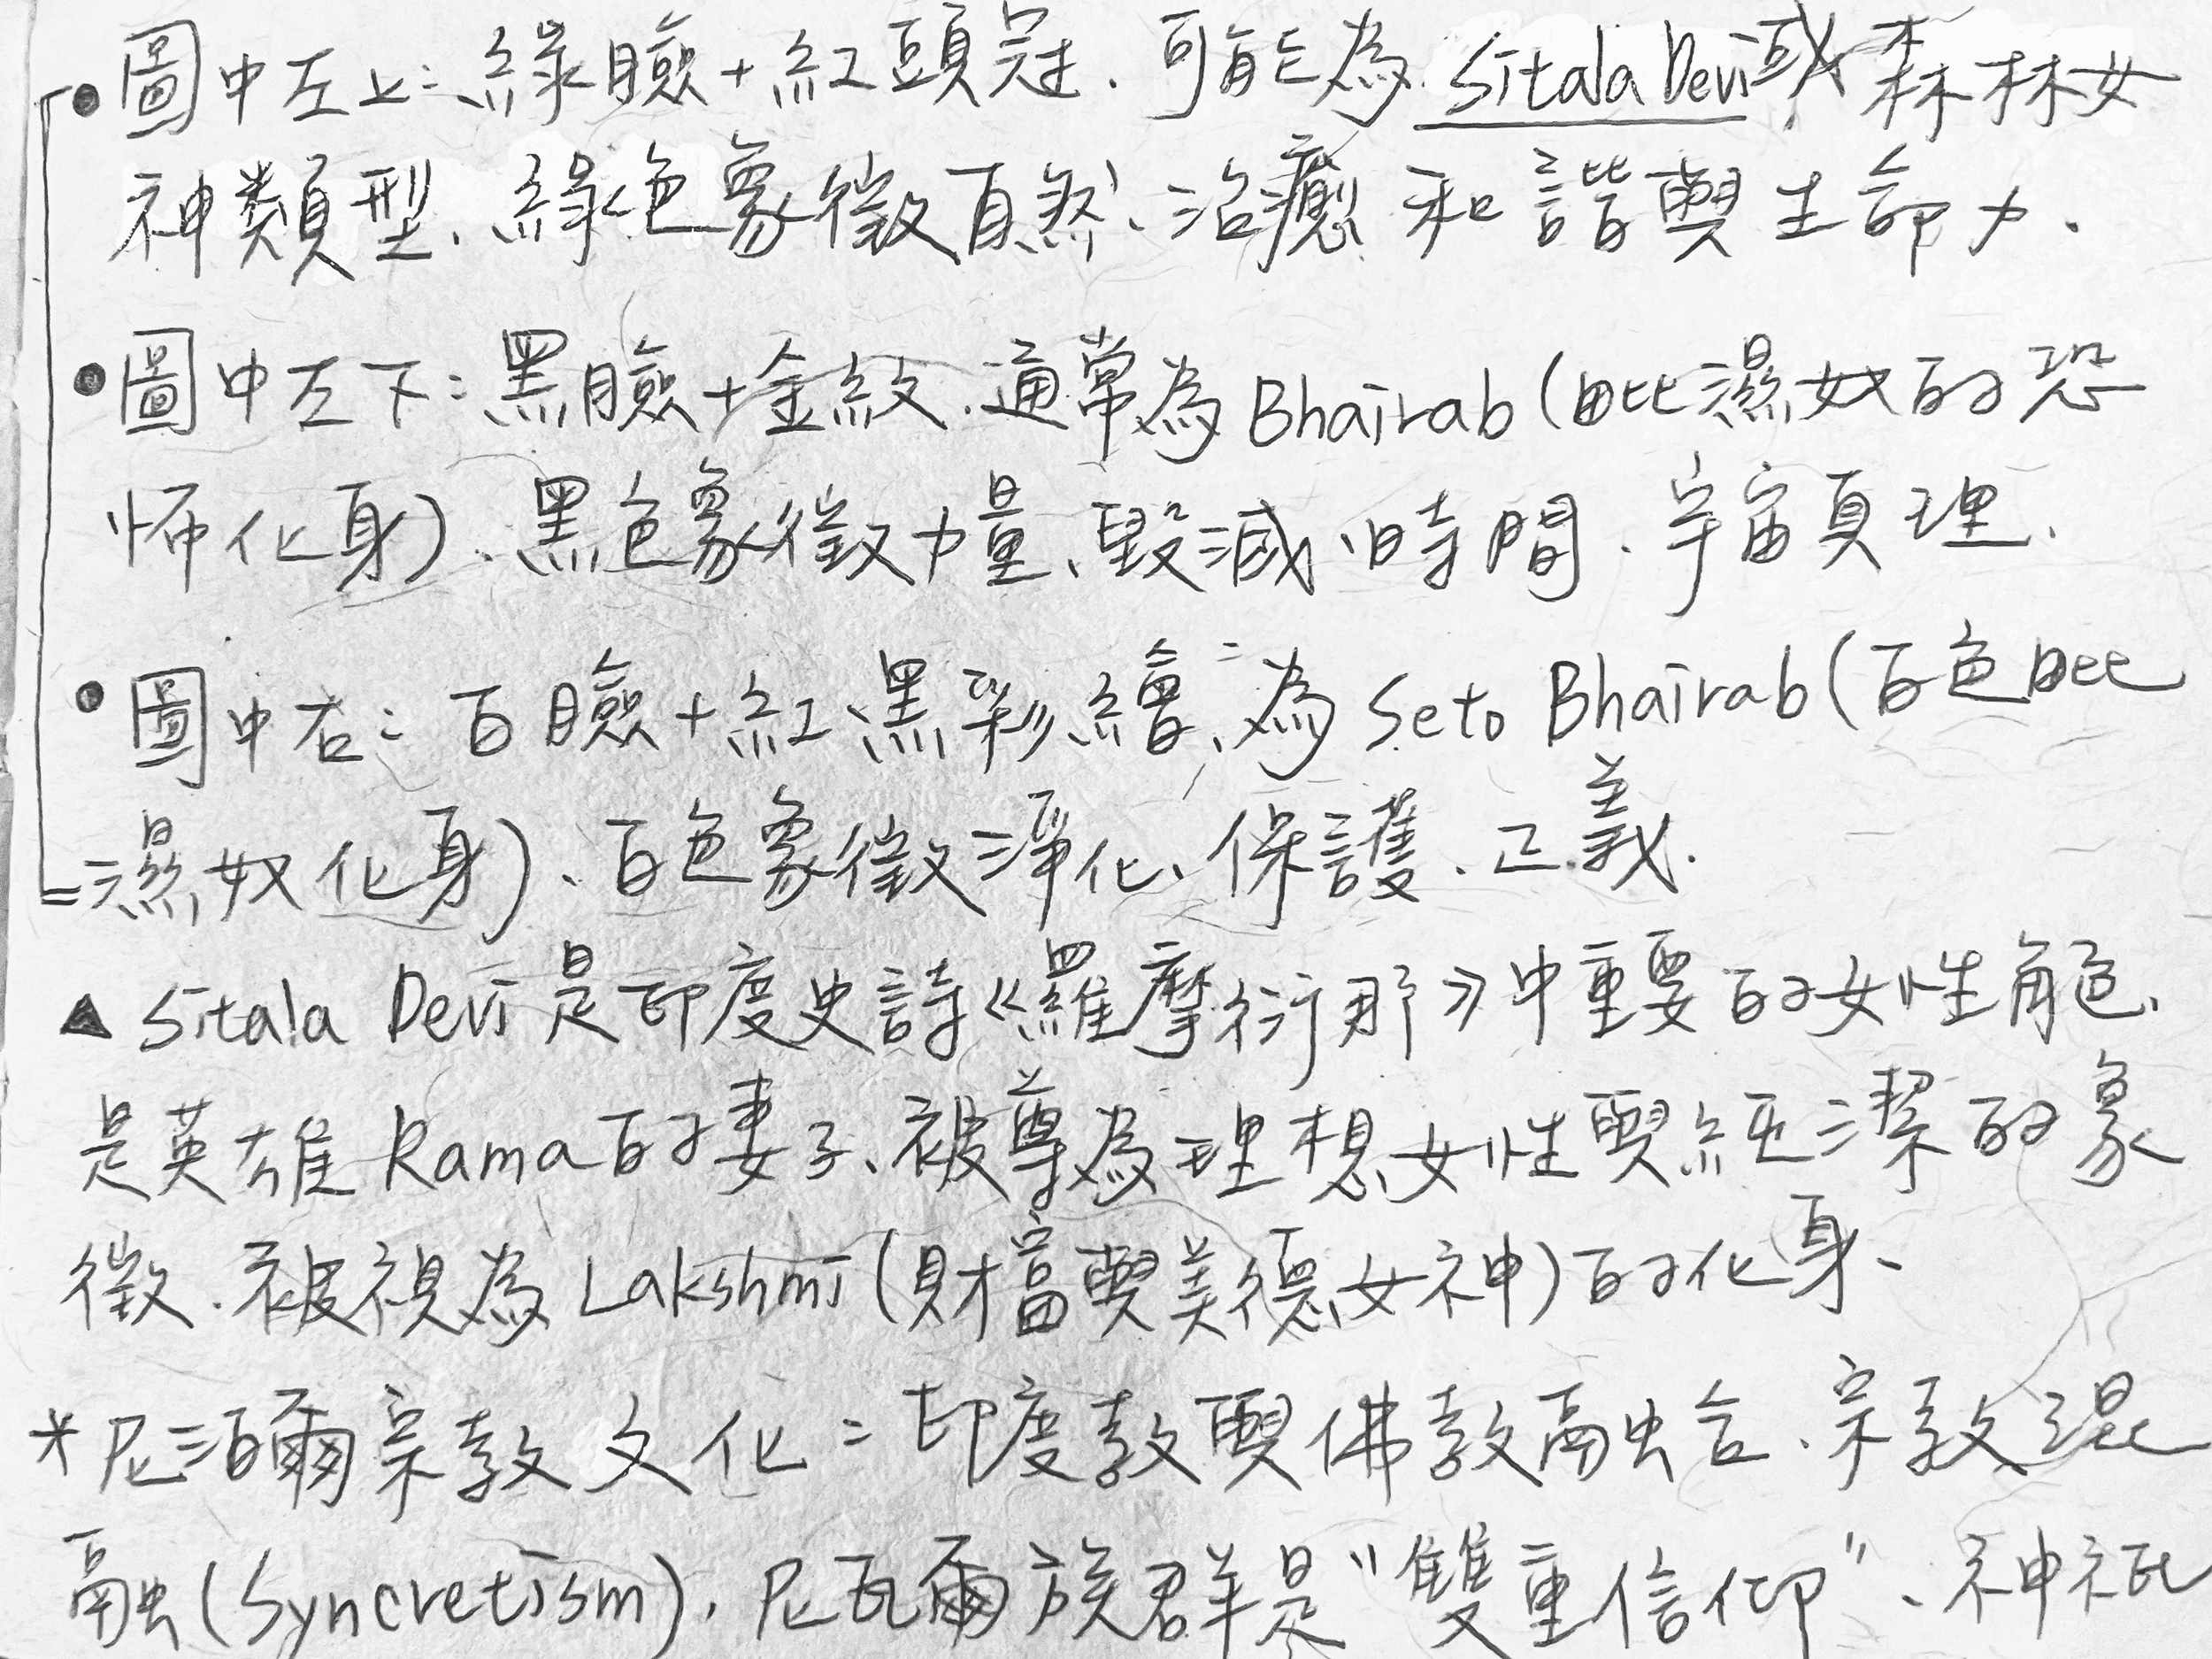 • 圖中左上：綠臉+紅頭冠、可能為 Sitala Devi 或森林女
神類型、綠色象徵自然、治癒和諧與生命力.
• 圖中左下：黑臉+金紋、通常為 Bhairab (毗濕奴的恐
怖化身)、黑色象徵力量、毀滅、時間、宇宙真理.
• 圖中右：白臉+紅、黑彩繪、為 Seto Bhairab (白色毗
濕奴化身)、白色象徵淨化、保護、正義.
▲ Sitala Devi 是印度史詩《羅摩衍那》中重要的女性角色、
是英雄 Rama 的妻子、被尊為理想女性與純潔的象
徵、被視為 Lakshmi (財富與美德女神) 的化身、
* 尼泊爾宗教文化：印度教與佛教融合、宗教混
融 (Syncretism)、尼瓦爾族群是"雙重信仰"、神祇